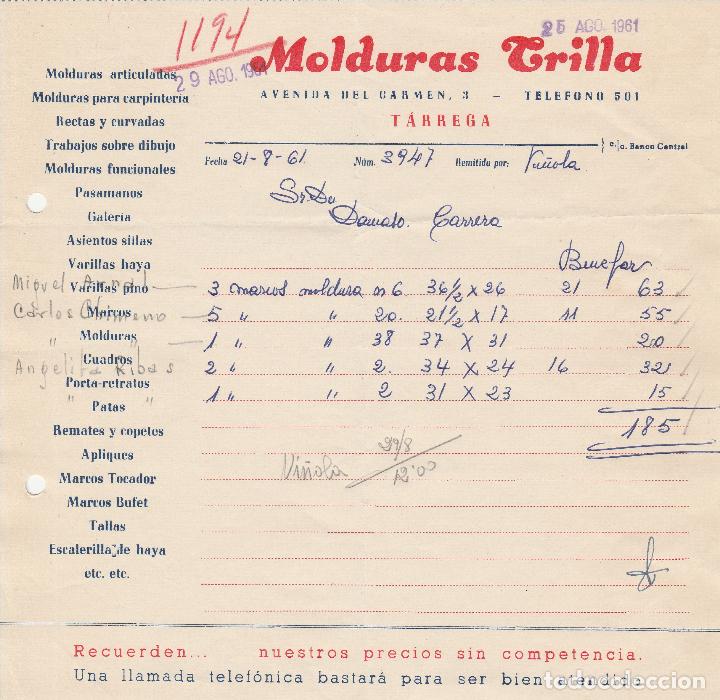 1194
25 AGO. 1961
29 AGO. 1961
Molduras Trilla
AVENIDA DEL CARMEN, 3 – TELEFONO 501
TÁRREGA
c./c. Banco Central
Fecha 21-8-61 Núm. 3947 Remitido por: Viñola
Sr. Dn
Damaso. Carrera
Binefar
Molduras articuladas
Molduras para carpintería
Rectas y curvadas
Trabajos sobre dibujo
Molduras funcionales
Pasamanos
Galería
Asientos sillas
Varillas haya
Varillas pino
Marcos
Molduras
Cuadros
Porta-retratos
Patas
Remates y copetes
Apliques
Marcos Tocador
Marcos Bufet
Tallas
Escalerilla de haya
etc. etc.
Miguel
Carlos
" "
Angelita Ribas
" "
3 marcos moldura n 6 36 1/2 x 26 21 63
5 " " 20. 21 1/2 x 17 11 55
1 " " 38 37 x 31 20
2 " " 2. 34 x 24 16 32
1 " " 2 31 x 23 15
185
Viñola 29/8
12'00
Recuerden... nuestros precios sin competencia.
Una llamada telefónica bastará para ser bien atendido
todocoleccion.net